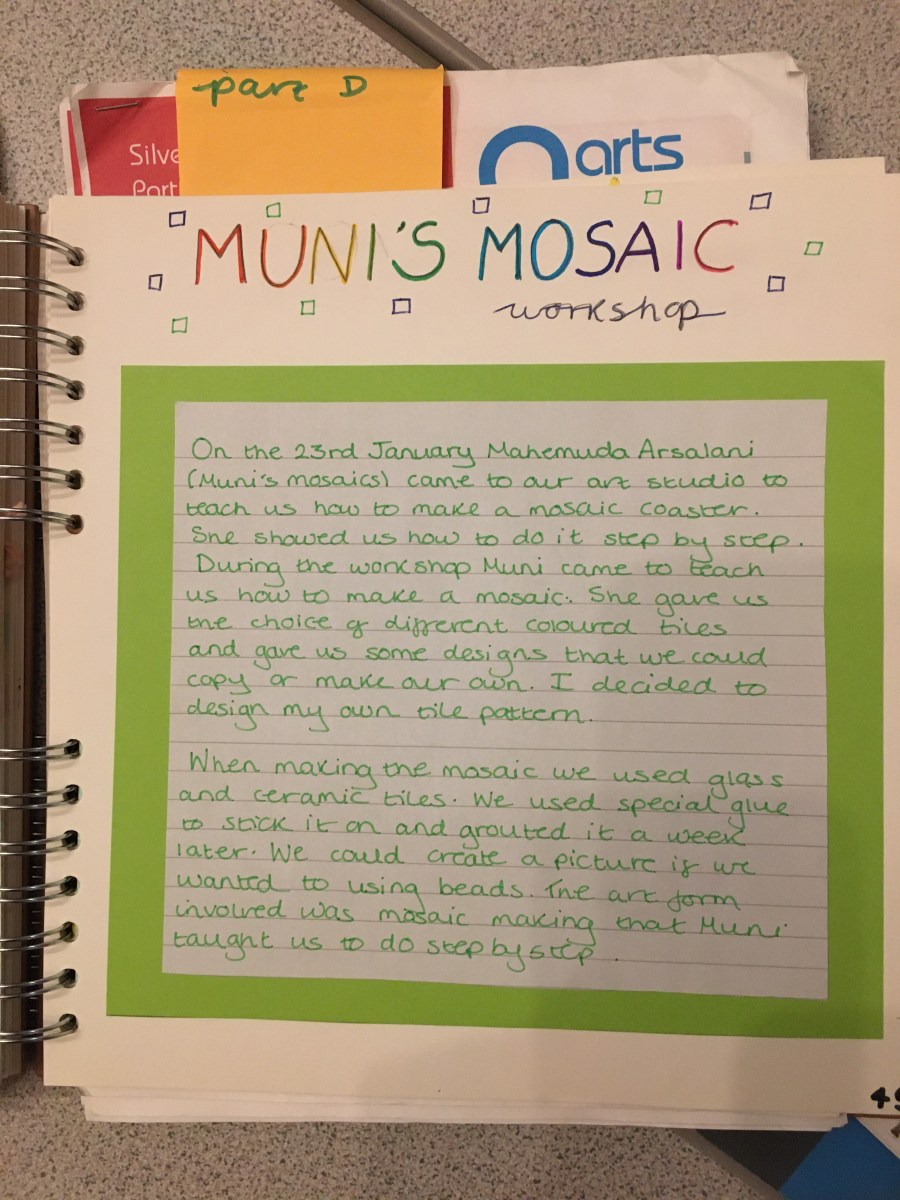 part D
Silve
Part
arts
MUNI'S MOSAIC
workshop
On the 23rd January Mahemuda Arsalani
(Muni's mosaics) came to our art studio to
teach us how to make a mosaic coaster.
She showed us how to do it step by step.
During the workshop Muni came to teach
us how to make a mosaic. She gave us
the choice of different coloured tiles
and gave us some designs that we could
copy or make our own. I decided to
design my own tile pattern.
When making the mosaic we used glass
and ceramic tiles. We used special glue
to stick it on and grouted it a week
later. We could create a picture if we
wanted to using beads. The art form
involved was mosaic making that Muni
taught us to do step by step.